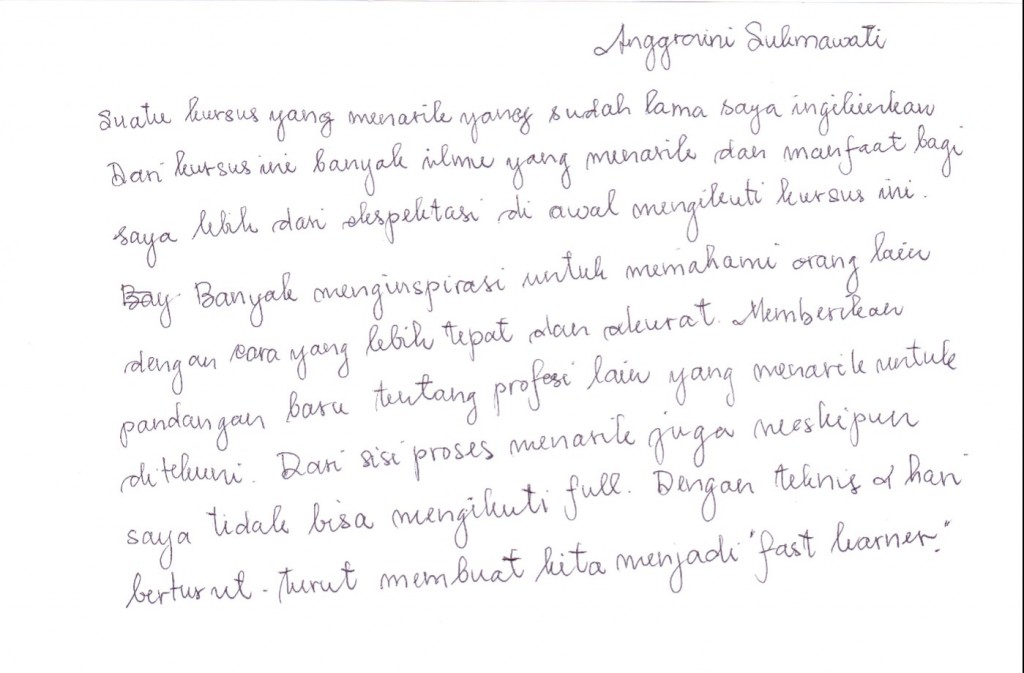 Anggraini Sukmawati
Suatu kursus yang menarik yang sudah lama saya inginkan
Dari kursus ini banyak ilmu yang menarik dan manfaat bagi
saya lebih dari ekspektasi di awal mengikuti kursus ini.
Bay Banyak menginspirasi untuk memahami orang lain
dengan cara yang lebih tepat dan akurat. Memberikan
pandangan baru tentang profesi lain yang menarik untuk
ditekuni. Dari sisi proses menarik juga meskipun
saya tidak bisa mengikuti full. Dengan teknis 2 hari
berturut-turut membuat kita menjadi "fast learner."